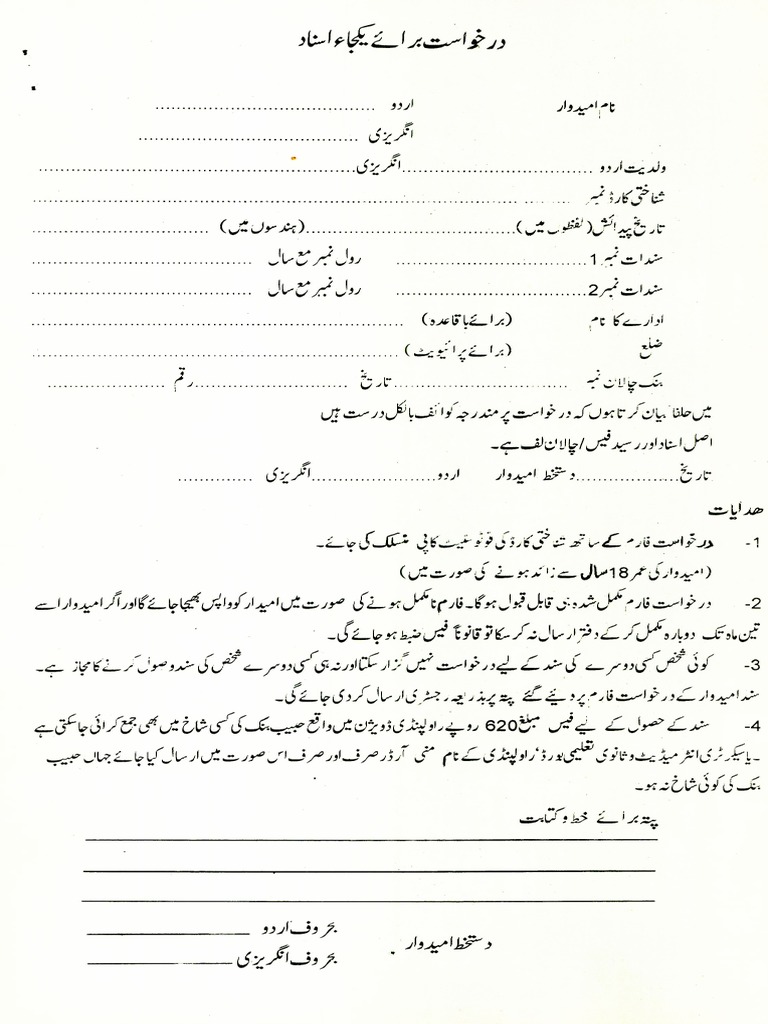 درخواست برائے یکجاء اسناد
نام امیدوار اردو ........................................
انگریزی ........................................
ولدیت اردو ...................................انگریزی..........................................................
شناختی کارڈ نمبر ....................................................................................................
تاریخ پیدائش(لفظوں میں)......................................(ہندسوں میں) ................................
سندات نمبر 1................................... رول نمبر مع سال ........................................
سندات نمبر 2................................... رول نمبر مع سال ........................................
ادارے کا نام (برائے باقاعدہ) ....................................................................
ضلع (برائے پرائیویٹ) ....................................................................
بنک چالان نمبر ................................تاریخ ............................رقم ......................
میں حلفاً بیان کرتا ہوں کہ درخواست پر مندرجہ کوائف بالکل درست ہیں
اصل اسناد اور رسید فیس/چالان لف ہے۔
تاریخ...................دستخط امیدوار اردو.......................انگریزی ..............
ھدایات
1- درخواست فارم کے ساتھ شناختی کارڈ کی فوٹوسٹیٹ کاپی منسلک کی جائے۔
(امیدوار کی عمر 18 سال سے زائد ہونے کی صورت میں)
2- درخواست فارم مکمل شدہ ہی قابل قبول ہوگا۔ فارم نامکمل ہونے کی صورت میں امیدار کو واپس بھیجا جائے گا اور اگر امیدوار اسے
تین ماہ تک دوبارہ مکمل کرکے دفتر ارسال نہ کرسکا تو قانوناً فیس ضبط ہو جائے گی۔
3- کوئی شخص کسی دوسرے کی سند کے لیے درخواست نہیں گزار سکتا اور نہ ہی کسی دوسرے شخص کی سند وصول کرنے کا مجاز ہے۔
سند امیدوار کے درخواست فارم پر دیئے گئے پتہ پر بذریعہ رجسٹری ارسال کر دی جائے گی۔
4- سند کے حصول کے لیے فیس مبلغ 620 روپے راولپنڈی ڈویژن میں واقع حبیب بنک کی کسی شاخ میں بھی جمع کرائی جاسکتی ہے
۔ یا سیکرٹری انٹرمیڈیٹ و ثانوی تعلیمی بورڈ، راولپنڈی کے نام منی آرڈر صرف اور صرف اس صورت میں ارسال کیا جائے جہاں حبیب
بنک کی کوئی شاخ نہ ہو۔
پتہ برائے خط و کتابت
دستخط امیدوار بحروف اردو ____________
بحروف انگریزی ____________